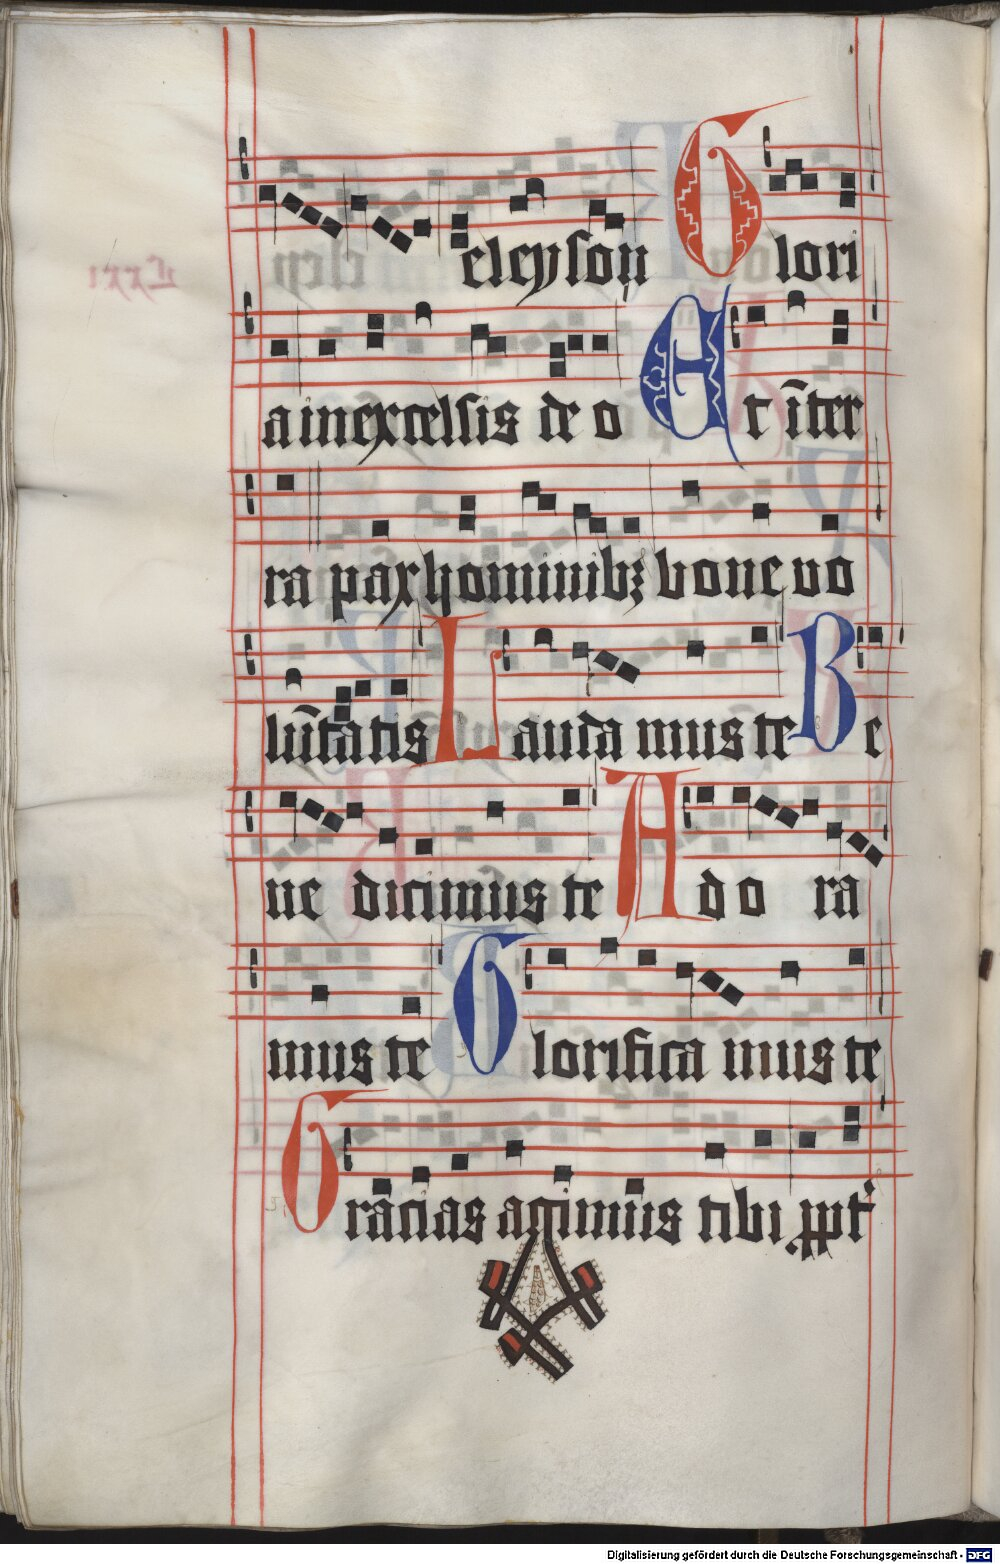 eleyson Glori
a in excelsis deo Et īter
ra pax hominibꝫ bone vo
lūtatis Laudamus te Be
nedicimus te Adora
mus te Glorificamus te
Gracias agimus tibi ꝓpt᷑
Digitalisierung gefördert durch die Deutsche Forschungsgemeinschaft - DFG